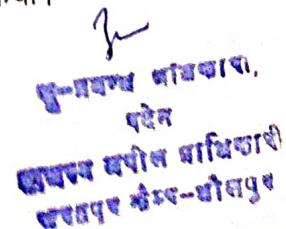 भू-प्रबन्ध अधिकारी,
पदेन
राजस्व अपील प्राधिकारी
भरतपुर कैम्प-धौलपुर